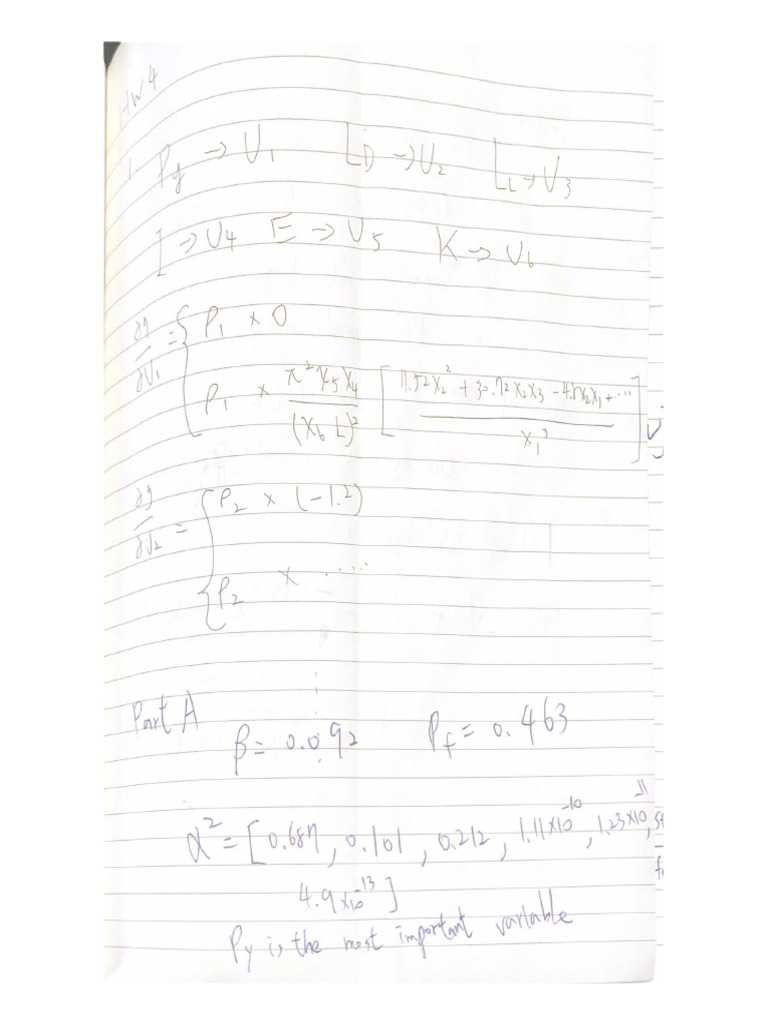 HW4
1. Py → U1 LD → U2 LL → U3
I → U4 E → U5 K → U6
∂g/∂U1 = { P1 × 0
P1 × π²X5X4/(X6 L)² [ (11.52X2² + 30.72X2X3 - + ...)/X1³ ]
∂g/∂U2 = { P2 × (-1.2)
{ P2 × .....
Part A
β = 0.092 Pf = 0.463
α² = [0.687, 0.101, 0.212, 1.11×10⁻¹⁰, 1.23×10⁻¹¹,
4.9×10⁻¹³]
Py is the most important variable